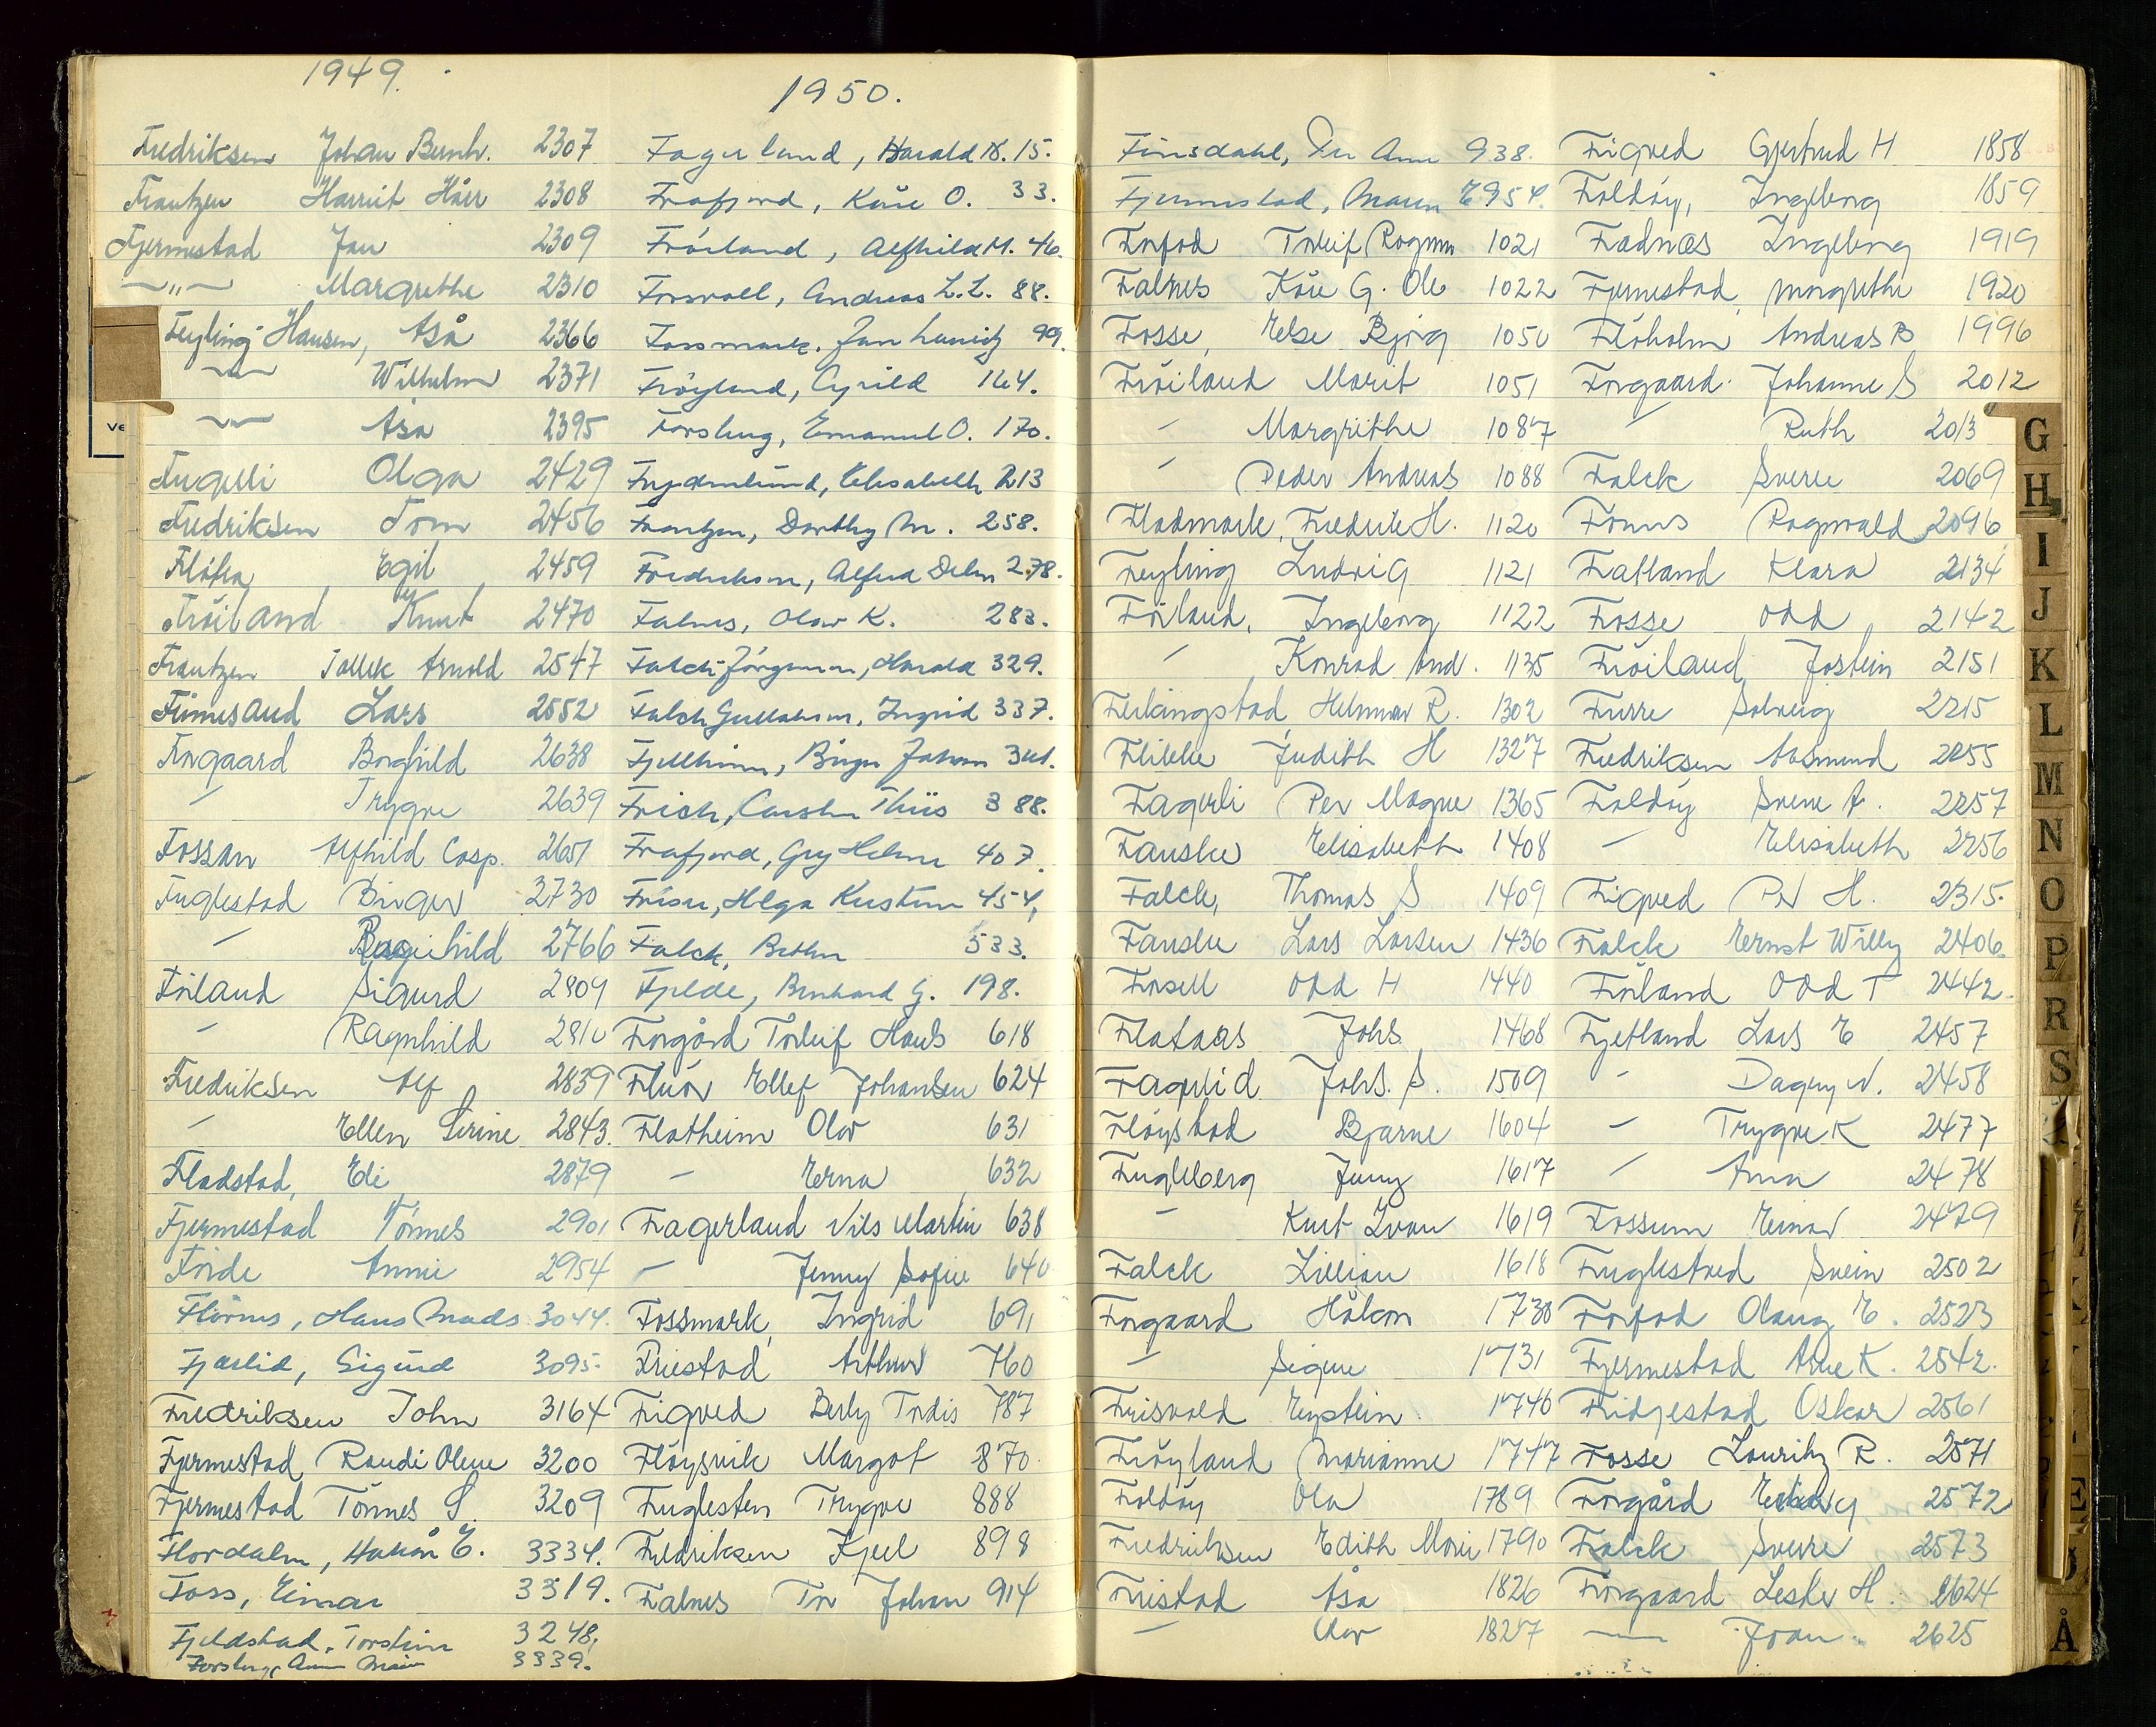 1949.
Fredriksen Johan Bernh. 2307
Frantzen Harriet Hårr 2308
Fjermestad Jan 2309
—"— Margrethe 2310
Feyling Hansen, Åså 2366
—"— Wilhelm 2371
—"— Åsa 2395
Fugelli Olga 2429
Fredriksen Tom 2456
Egil 2459
Fröiland Knut 2470
Frantzen Arnold 2547
Finnesand Lars 2552
Forgaard Borghild 2638
— Trygve 2639
Fossan Alfhild Casp. 2651
Fuglestad Birger 2730
— Ragnhild 2766
Förland Sigurd 2809
— Ragnhild 2810
Fredriksen Alf 2839
— Ellen Serine 2843.
Fladstad, Eli 2879
Fjermestad Tönnes 2901
Förde Annie 2954
Hans Mads 3044.
Fjælid, Sigurd 3095.
Fredriksen John 3164
Fjermestad Randi Olene 3200
Fjermestad Tönnes S. 3209
Flordalm, Håkon E. 3334.
Foss, Einar 3319.
Fjeldstad, Torstein 3248.
Forsberg, 3339.
1950.
Fagerland, Harald 15.
Frafjord, Kåre O. 33.
Fröiland, Alfhild M. 46.
Forsvoll, Andreas L.L. 88.
Fossmark, Jan Lauritz 99.
Fröyland, 164.
Forsberg, Emanuel O. 170.
Frydenlund, Elisabeth 213
Frantzen, Dorthy M. 258.
Fredriksen, 278.
Falnes, Olav K. 283.
Falch-Jörgensen, Harald 329.
Falch Gullaksen, Ingrid 337.
Fjellheim, Birger Johan
Frich, Carsten Thiis 388.
Frafjord, Gry Helene 407.
Helga Kirsten 454,
Falck, 533.
Fjelde, Bernhard G. 198.
Forgård Torleif Hauls 618
Ellef Johansen 624
Flatheim Olav 631
— Erna 632
Fagerland Nils Martin 638
— Jenny Sofie 640
Fossmark, Ingrid 691
Friestad Arthur 760
Figved Berly Tordis 787
Fløysvik Margot 870
Fuglesten Trygve 888
Fredriksen Kjell 898
Falnes Tor Johan 914
Finsdahl, 938.
Fjermestad, Maren E 954.
Forfod Torleif Ragnar 1021
Falnes Kåre G. Ole 1022
Fosse, Else Bjørg 1050
Fröiland Marit 1051
— Margrethe 1087
— Peder Andreas 1088
Fladmark, Fredrik H. 1120
Feyling Ludvig 1121
Förland, Ingeborg 1122
— Konrad And. 1135
Ferkingstad Helmer R. 1302
Flikke Judith H 1327
Fagerli Per Magne 1365
Fauske Elisabeth 1408
Falck, Thomas S 1409
Fauske Lars Larsen 1436
Fosell Odd H 1440
Flataas Johs 1468
Fagerlid Johs. S. 1509
Fløystad Bjarne 1604
Fugleberg Jenny 1617
— Kurt Ivan 1619
Falck Lillian 1618
Forgaard Håkon 1730
— Signe 1731
Frisvold Eystein 1746
Fröyland Marianne 1747
Foldöy Ola 1789
Fredriksen Edith Marie 1790
Fristad Åsa 1826
— Olav 1827
Figved Gjertrud H 1858
Foldöy, Ingeborg 1859
Fadnes Ingeborg 1919
Fjermestad, Margrethe 1920
Flöholm Andreas B 1996
Forgaard Johanne S 2012
— Ruth 2013
Falck Sverre 2069
Fonnes Ragnvald 2096
Fatland Klara 2134
Fosse Odd 2142
Fröiland Jostein 2151
Furre Solveig 2215
Fredriksen Aasmund 2255
Foldöy Svein A. 2257
— Elisabeth 2256
Figved Per H. 2315.
Falck Ernst Willy 2406.
Förland Odd T 2442.
Fjetland Lars E 2457
— Dagny N. 2458
— Trygve K 2477
— Anna 2478
Fossum Einar 2479
Fuglestved Svein 2502
Forfod Olaug E. 2523
Fjermestad Arne K. 2542.
Fidjestad Oskar 2561
Fosse Lauritz R. 2571
Forgård 2572
Falck Sverre 2573
Forgaard Lesler H. 2624
— Joan 2625
G
H
I
J
K
L
M
N
O
P
R
S
E
Å
ve